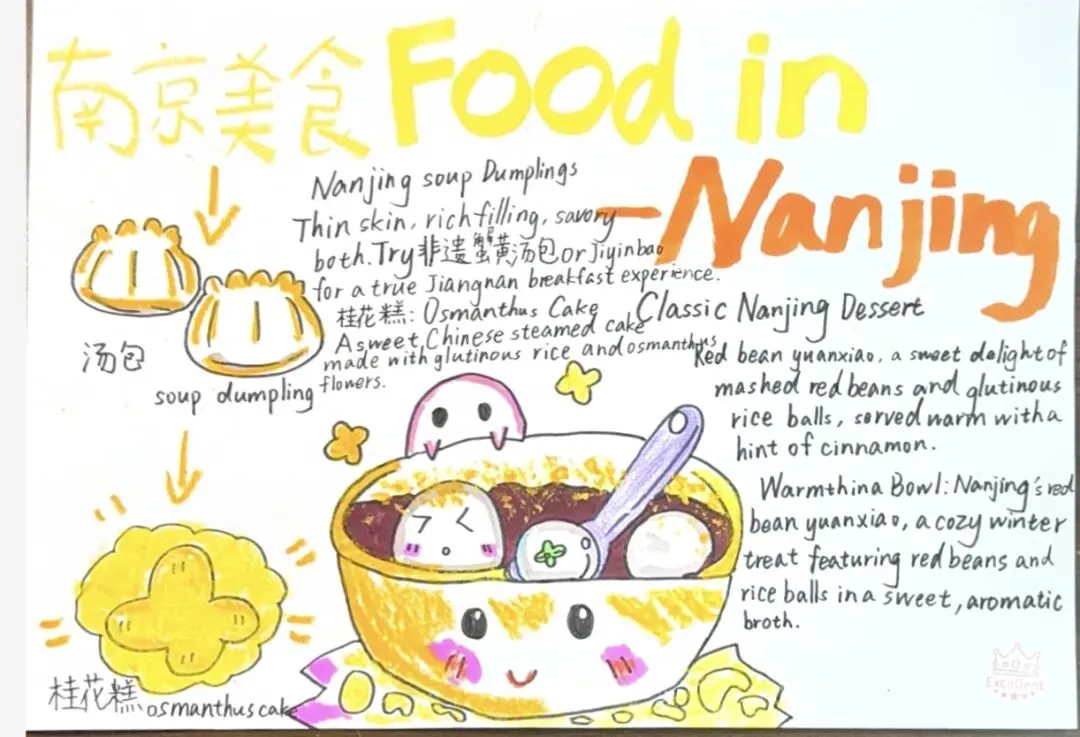 南京美食 Food in
-Nanjing
Nanjing soup Dumplings
Thin skin, rich filling, savory
both. Try 非遗蟹黄汤包 or Jiyinbao
for a true Jiangnan breakfast experience.
桂花糕: Osmanthus Cake
A sweet, Chinese steamed cake
made with glutinous rice and osmanthus
flowers.
汤包
soup dumpling
桂花糕 osmanthus cake
Classic Nanjing Dessert
Red bean yuanxiao, a sweet delight of
mashed red beans and glutinous
rice balls, served warm with a
hint of cinnamon.
Warmth in a Bowl: Nanjing's red
bean yuanxiao, a cozy winter
treat featuring red beans and
rice balls in a sweet, aromatic
broth.
Excellent